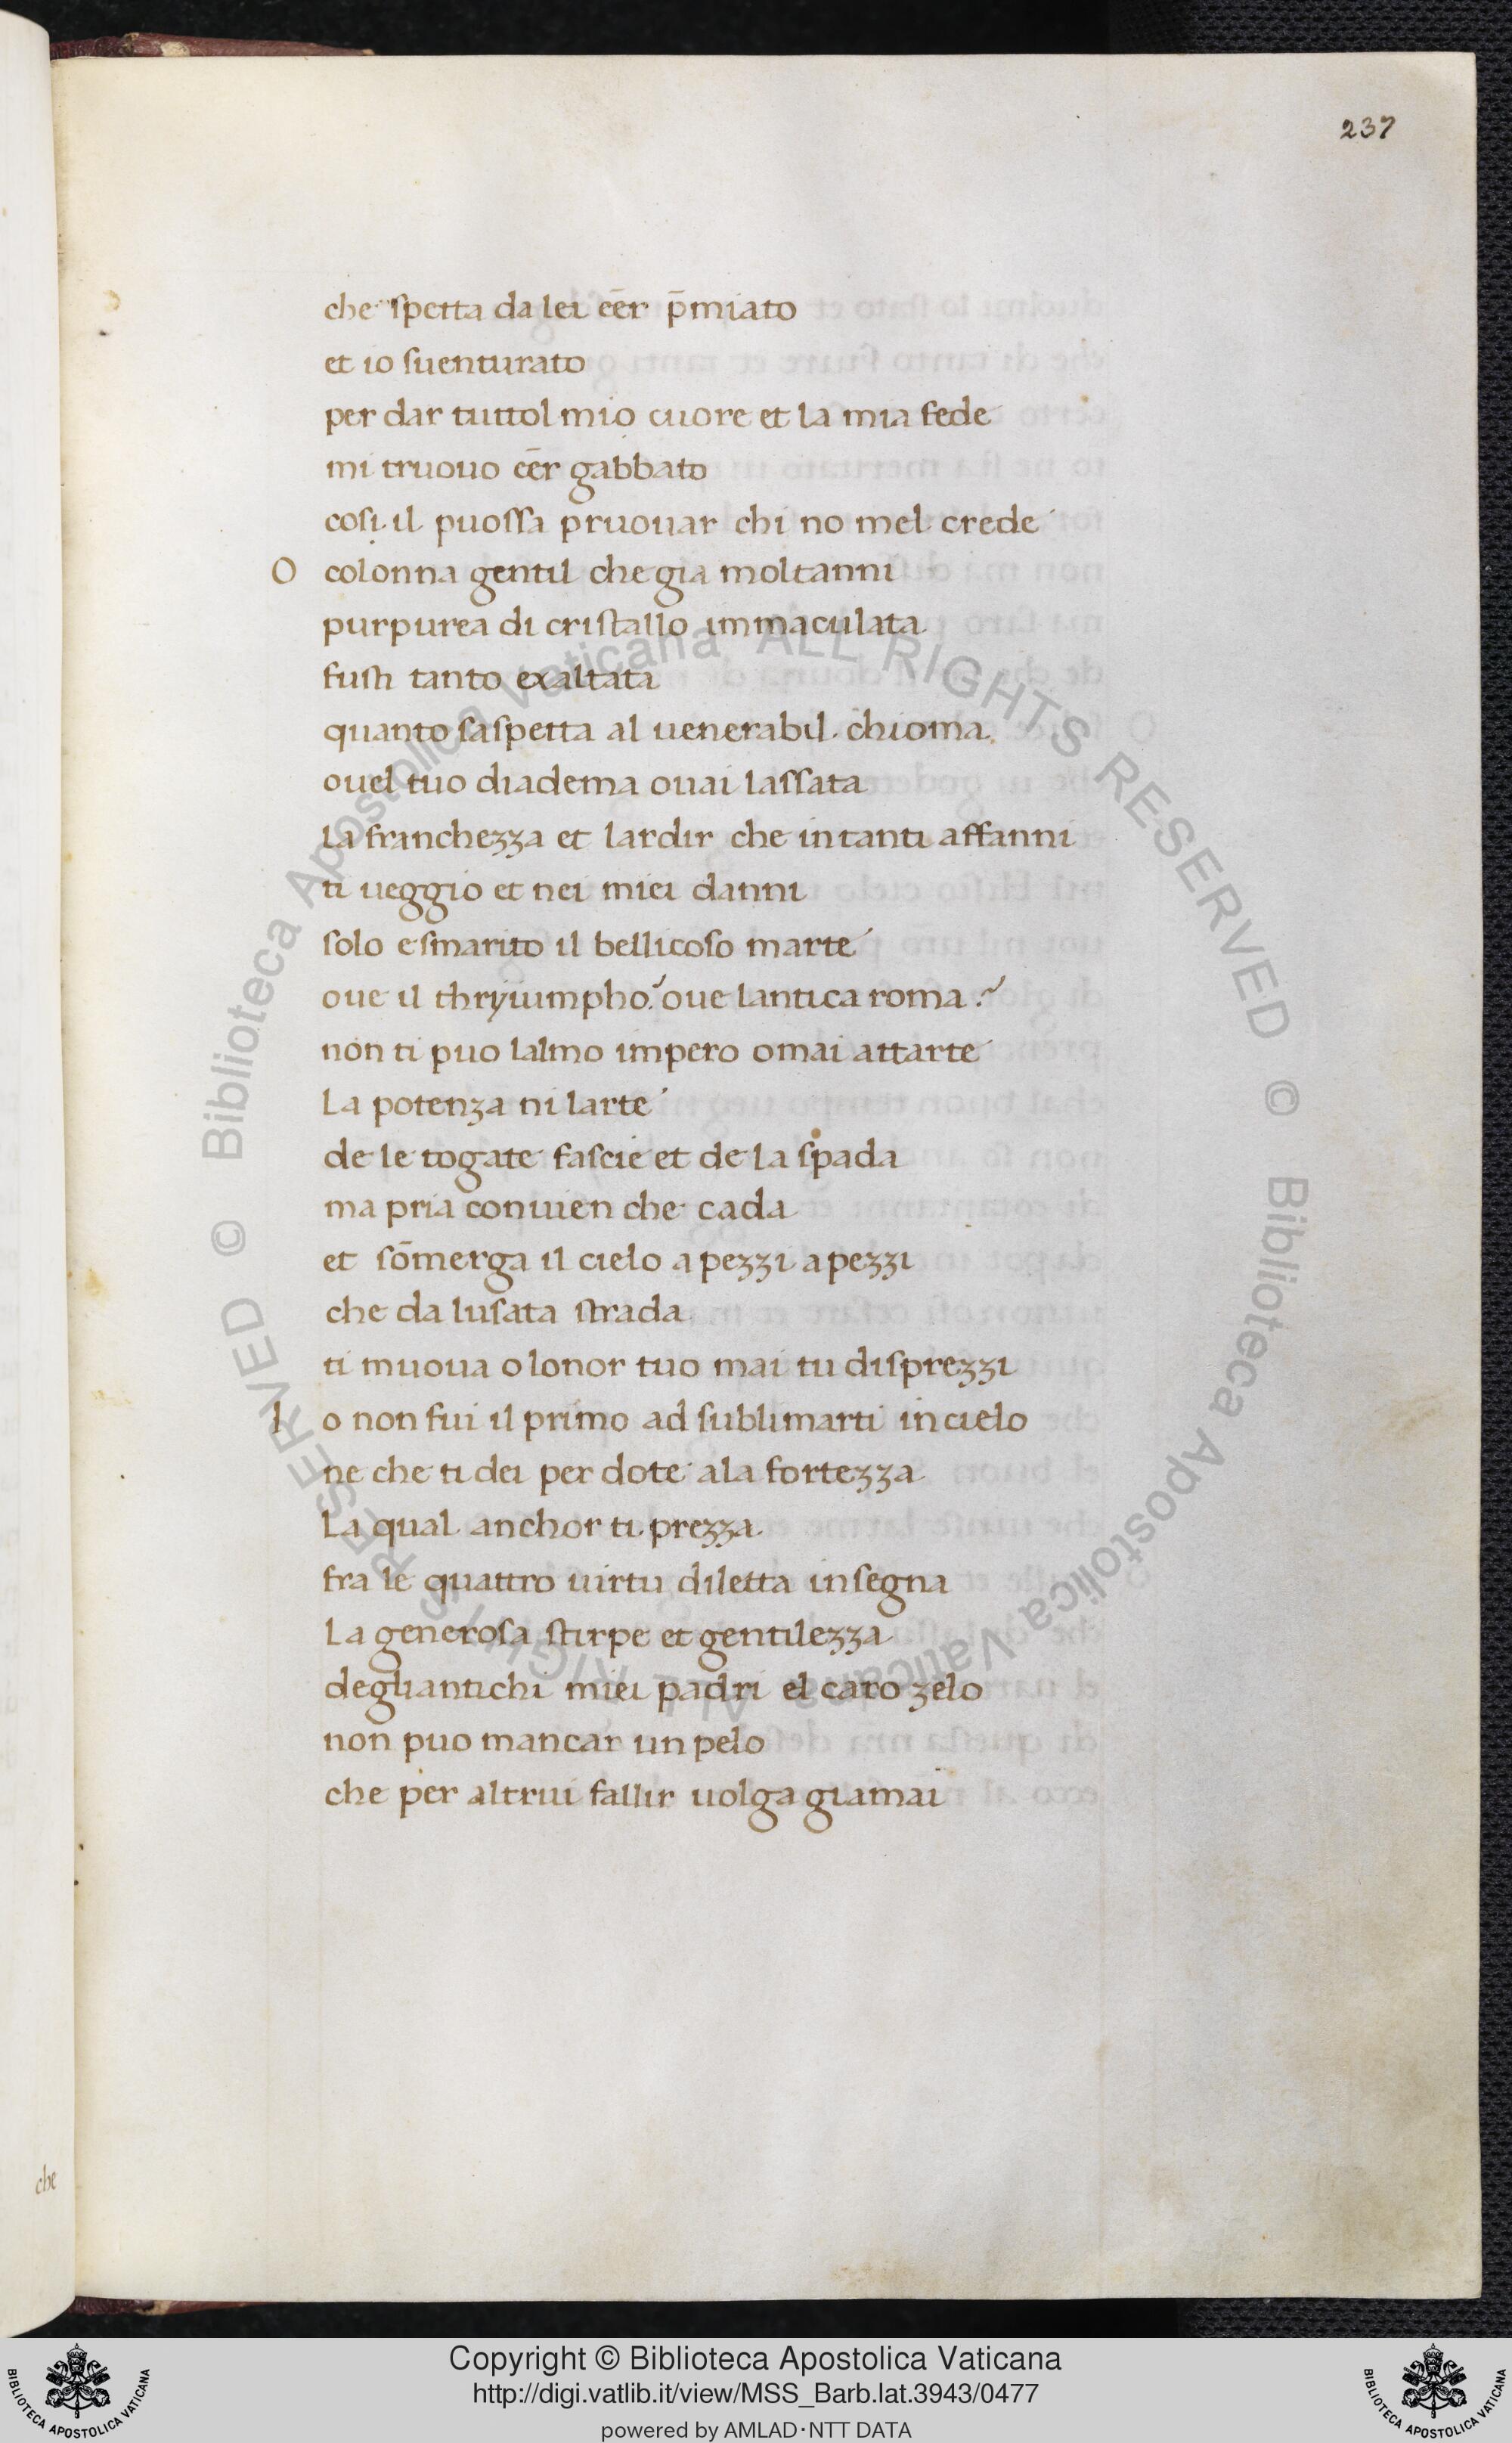 237
che spetta da lei eēr p̄miato
et io suenturato
per dar tuttol mio cuore et la mia fede
mi truouo eēr gabbato
cosi il puossa pruouar chi no mel crede
O colonna gentil che gia moltanni
purpurea di cristallo immaculata
fusti tanto exaltata
quanto saspetta al uenerabil chioma
ouel tuo diadema ouai lassata
La franchezza et lardir che in tanti affanni
ti ueggio et nei miei danni
solo e smarito il bellicoso marte
oue il thryiumpho? oue lantica roma?
non ti puo lalmo impero omai attarte
La potenza ni larte
de le togate fascie et de la spada
ma pria conuien che cada
et sōmerga il cielo a pezzi a pezzi
che da lusata strada
ti muoua o lonor tuo mai tu disprezzi
I o non fui il primo ad sublimarti in cielo
ne che ti dei per dote ala fortezza
La qual anchor ti prezza
fra le quattro uirtu diletta insegna
La generosa stirpe et gentilezza
degliantichi miei padri el caro zelo
non puo mancar un pelo
che per altrui fallir uolga giamai
che
© Biblioteca Apostolica Vaticana ALL RIGHTS RESERVED
© Biblioteca Apostolica Vaticana ALL RIGHTS RESERVED
Copyright © Biblioteca Apostolica Vaticana
http://digi.vatlib.it/view/MSS_Barb.lat.3943/0477
powered by AMLAD·NTT DATA
BIBLIOTECA APOSTOLICA VATICANA
BIBLIOTECA APOSTOLICA VATICANA